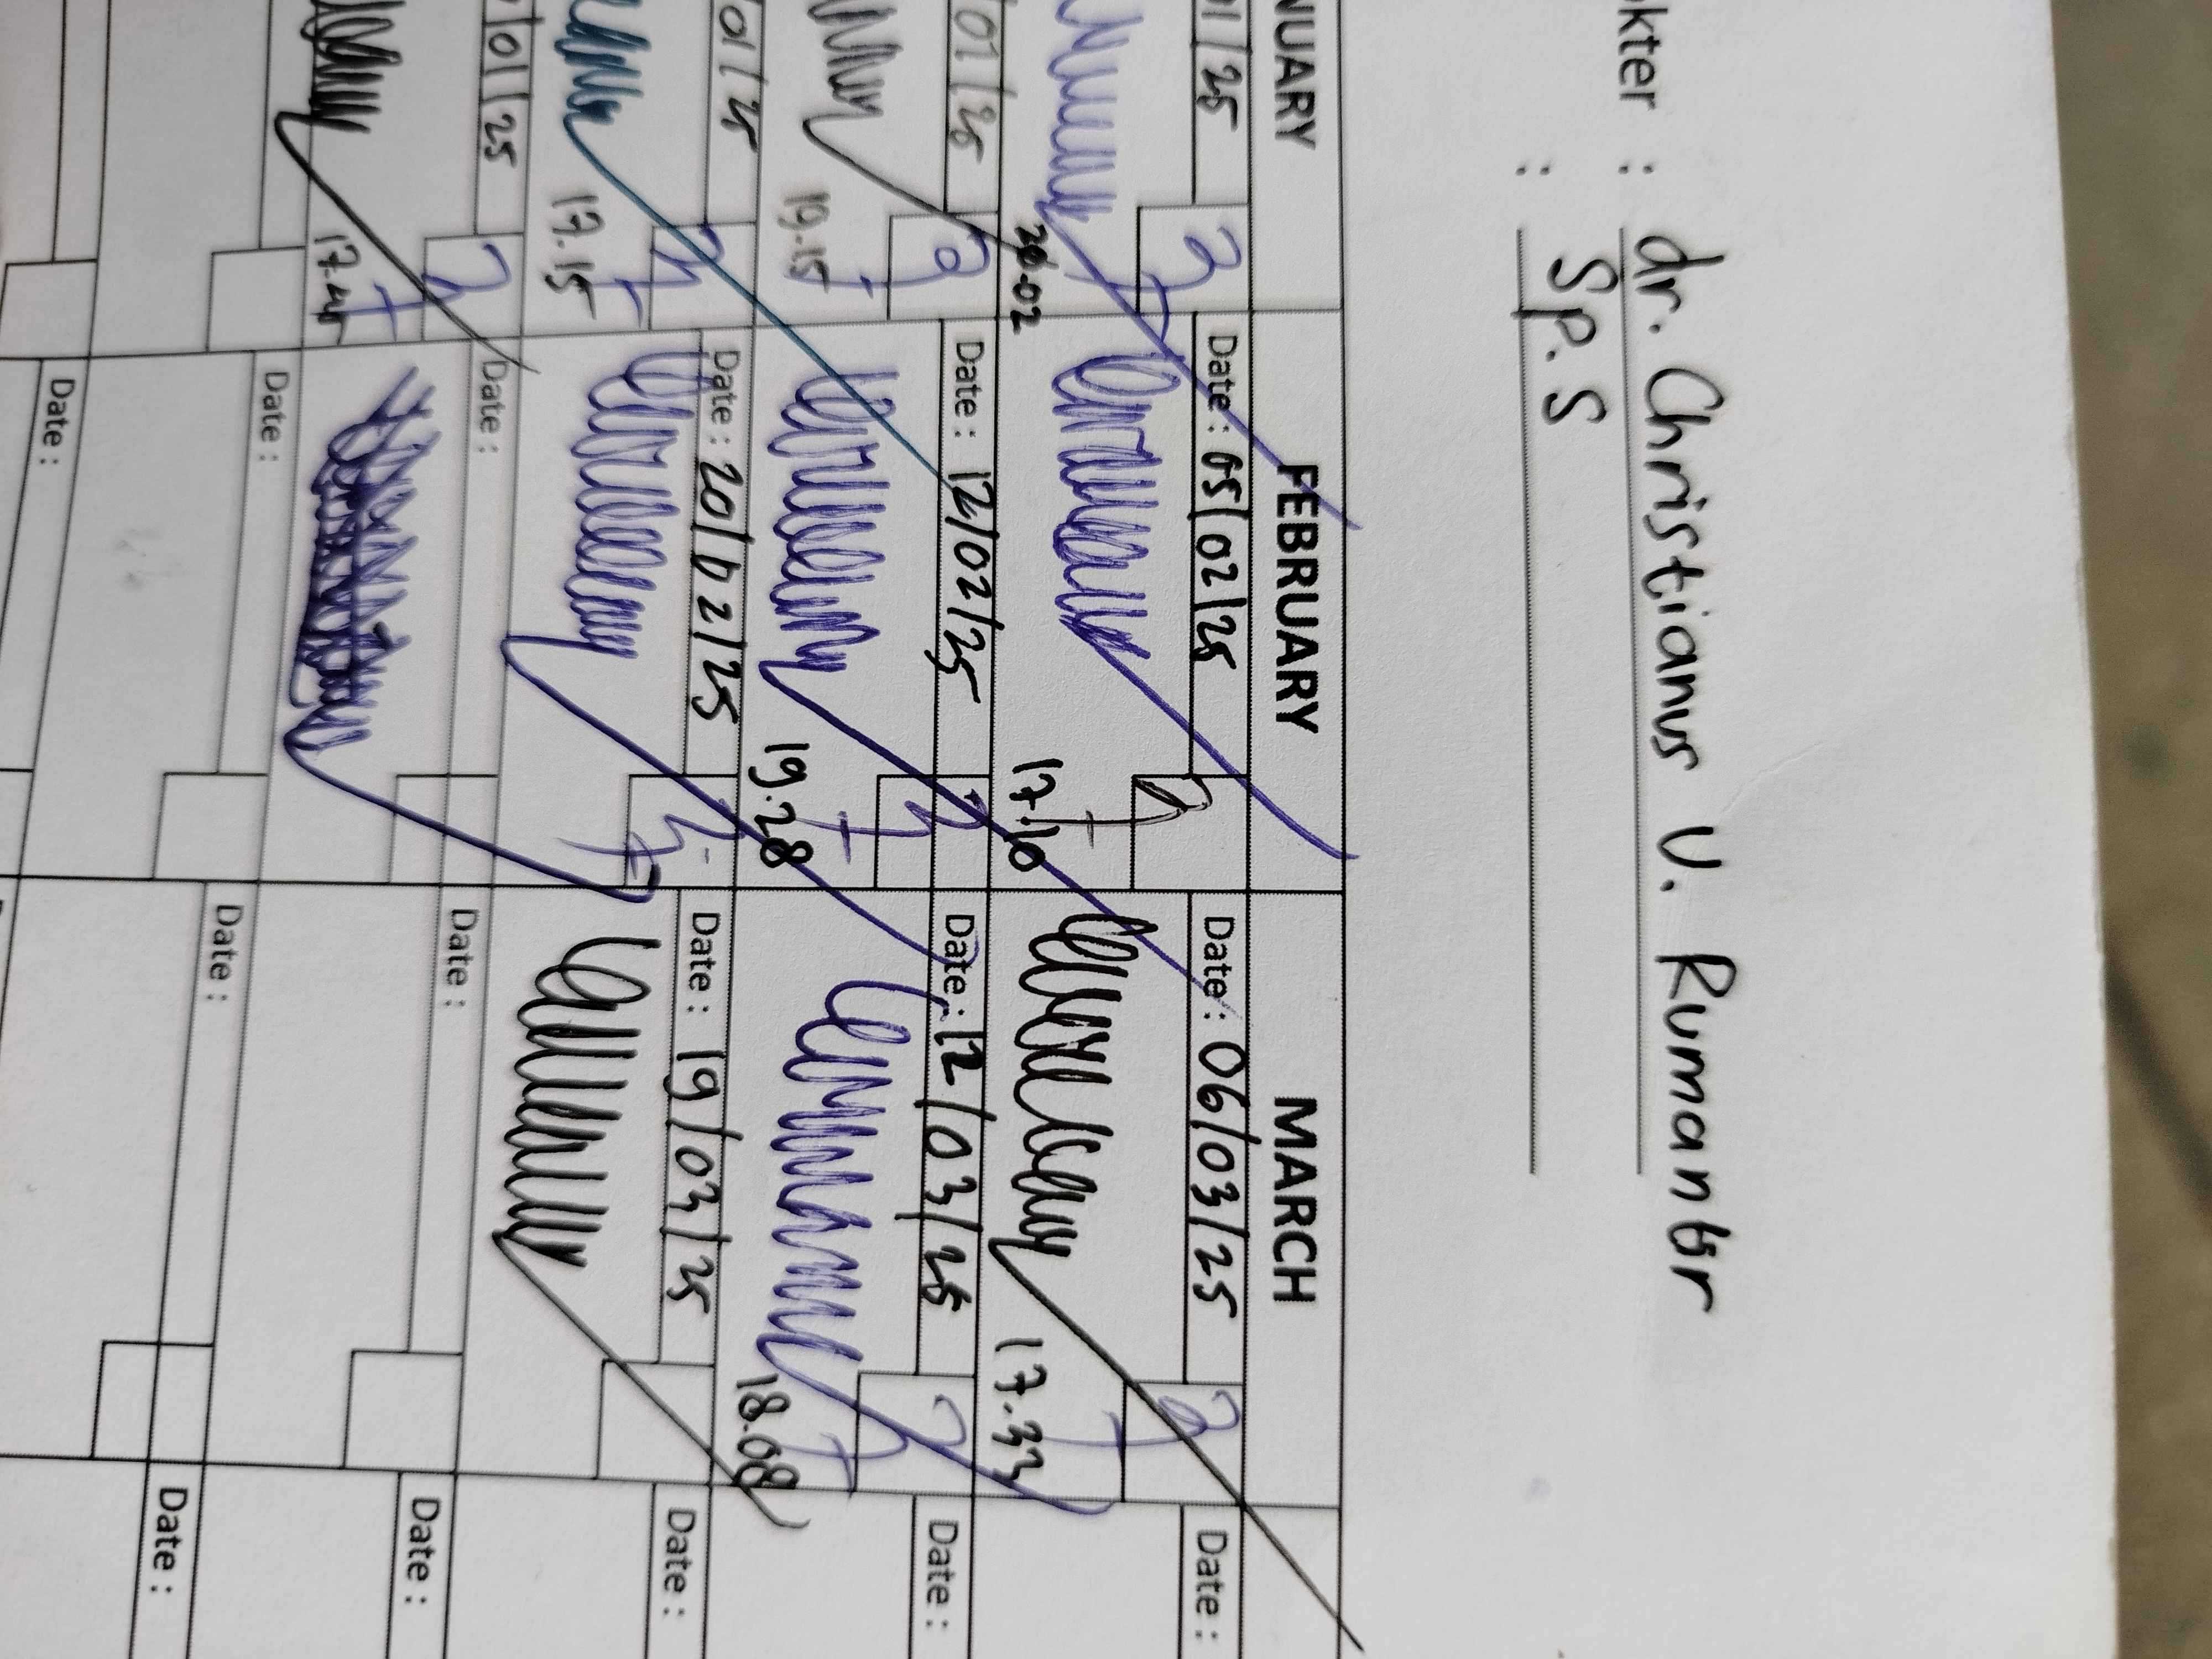 kter : dr. Christianus V. Rumambr
: Sp. S
NUARY FEBRUARY MARCH
01/25 Date : 05/02/25 Date : 06/03/25 Date :
20.02 17.10 17.33
01/25 Date : 12/02/25 Date : 12/03/25 Date :
19.15 19.28 18.08
01/25 Date : 20/02/25 Date : 19/03/25 Date :
17.15
/01/25 Date : Date : Date :
17.44
Date : Date : Date :
Date :